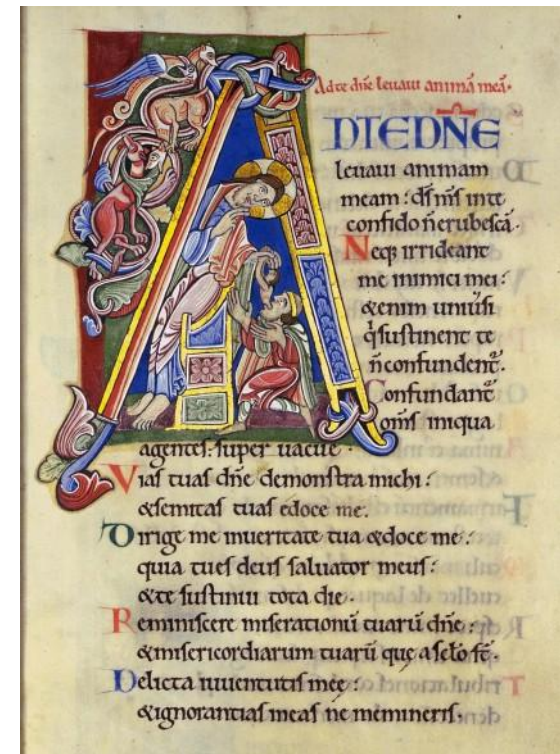 Ad te dn̄e leuaui animā meā.
ADTEDN̄E
leuaui animam
meam: ds̄ ms̄ in te
confido n̄ erubescā.
Neq; irrideant
me inimici mei:
&enim uniuſi
q̄ suſtinent te
n̄ confundent̄.
Confundant̄
om̄s iniqua
agentes: ſuper uacue.
Vias tuas dn̄e demonſtra michi:
&ſemitas tuas edoce me.
Dirige me inueritate tua &doce me:
quia tu es deus ſaluator meus:
&te ſuſtinui tota die.
Reminiſcere miſerationū tuarū dn̄e:
&miſericordiarum tuarū que a ſclo ſt̄.
Delicta iuuentutis mee:
&ignorantias meas ne memineris.